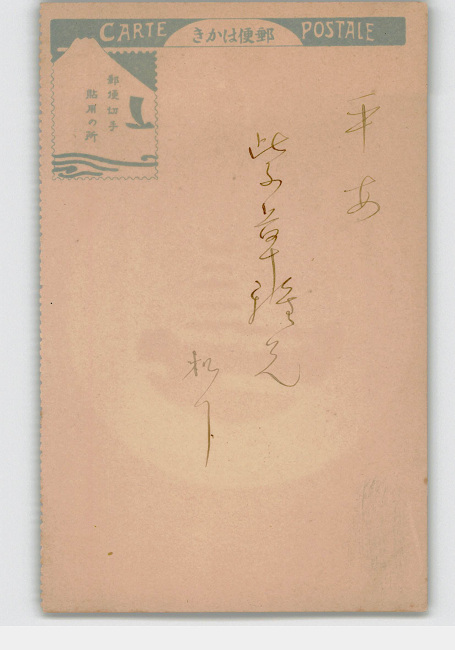 CARTE きかは便郵 POSTALE
郵便切手
貼用の所
平安
紫草雅兄
松下